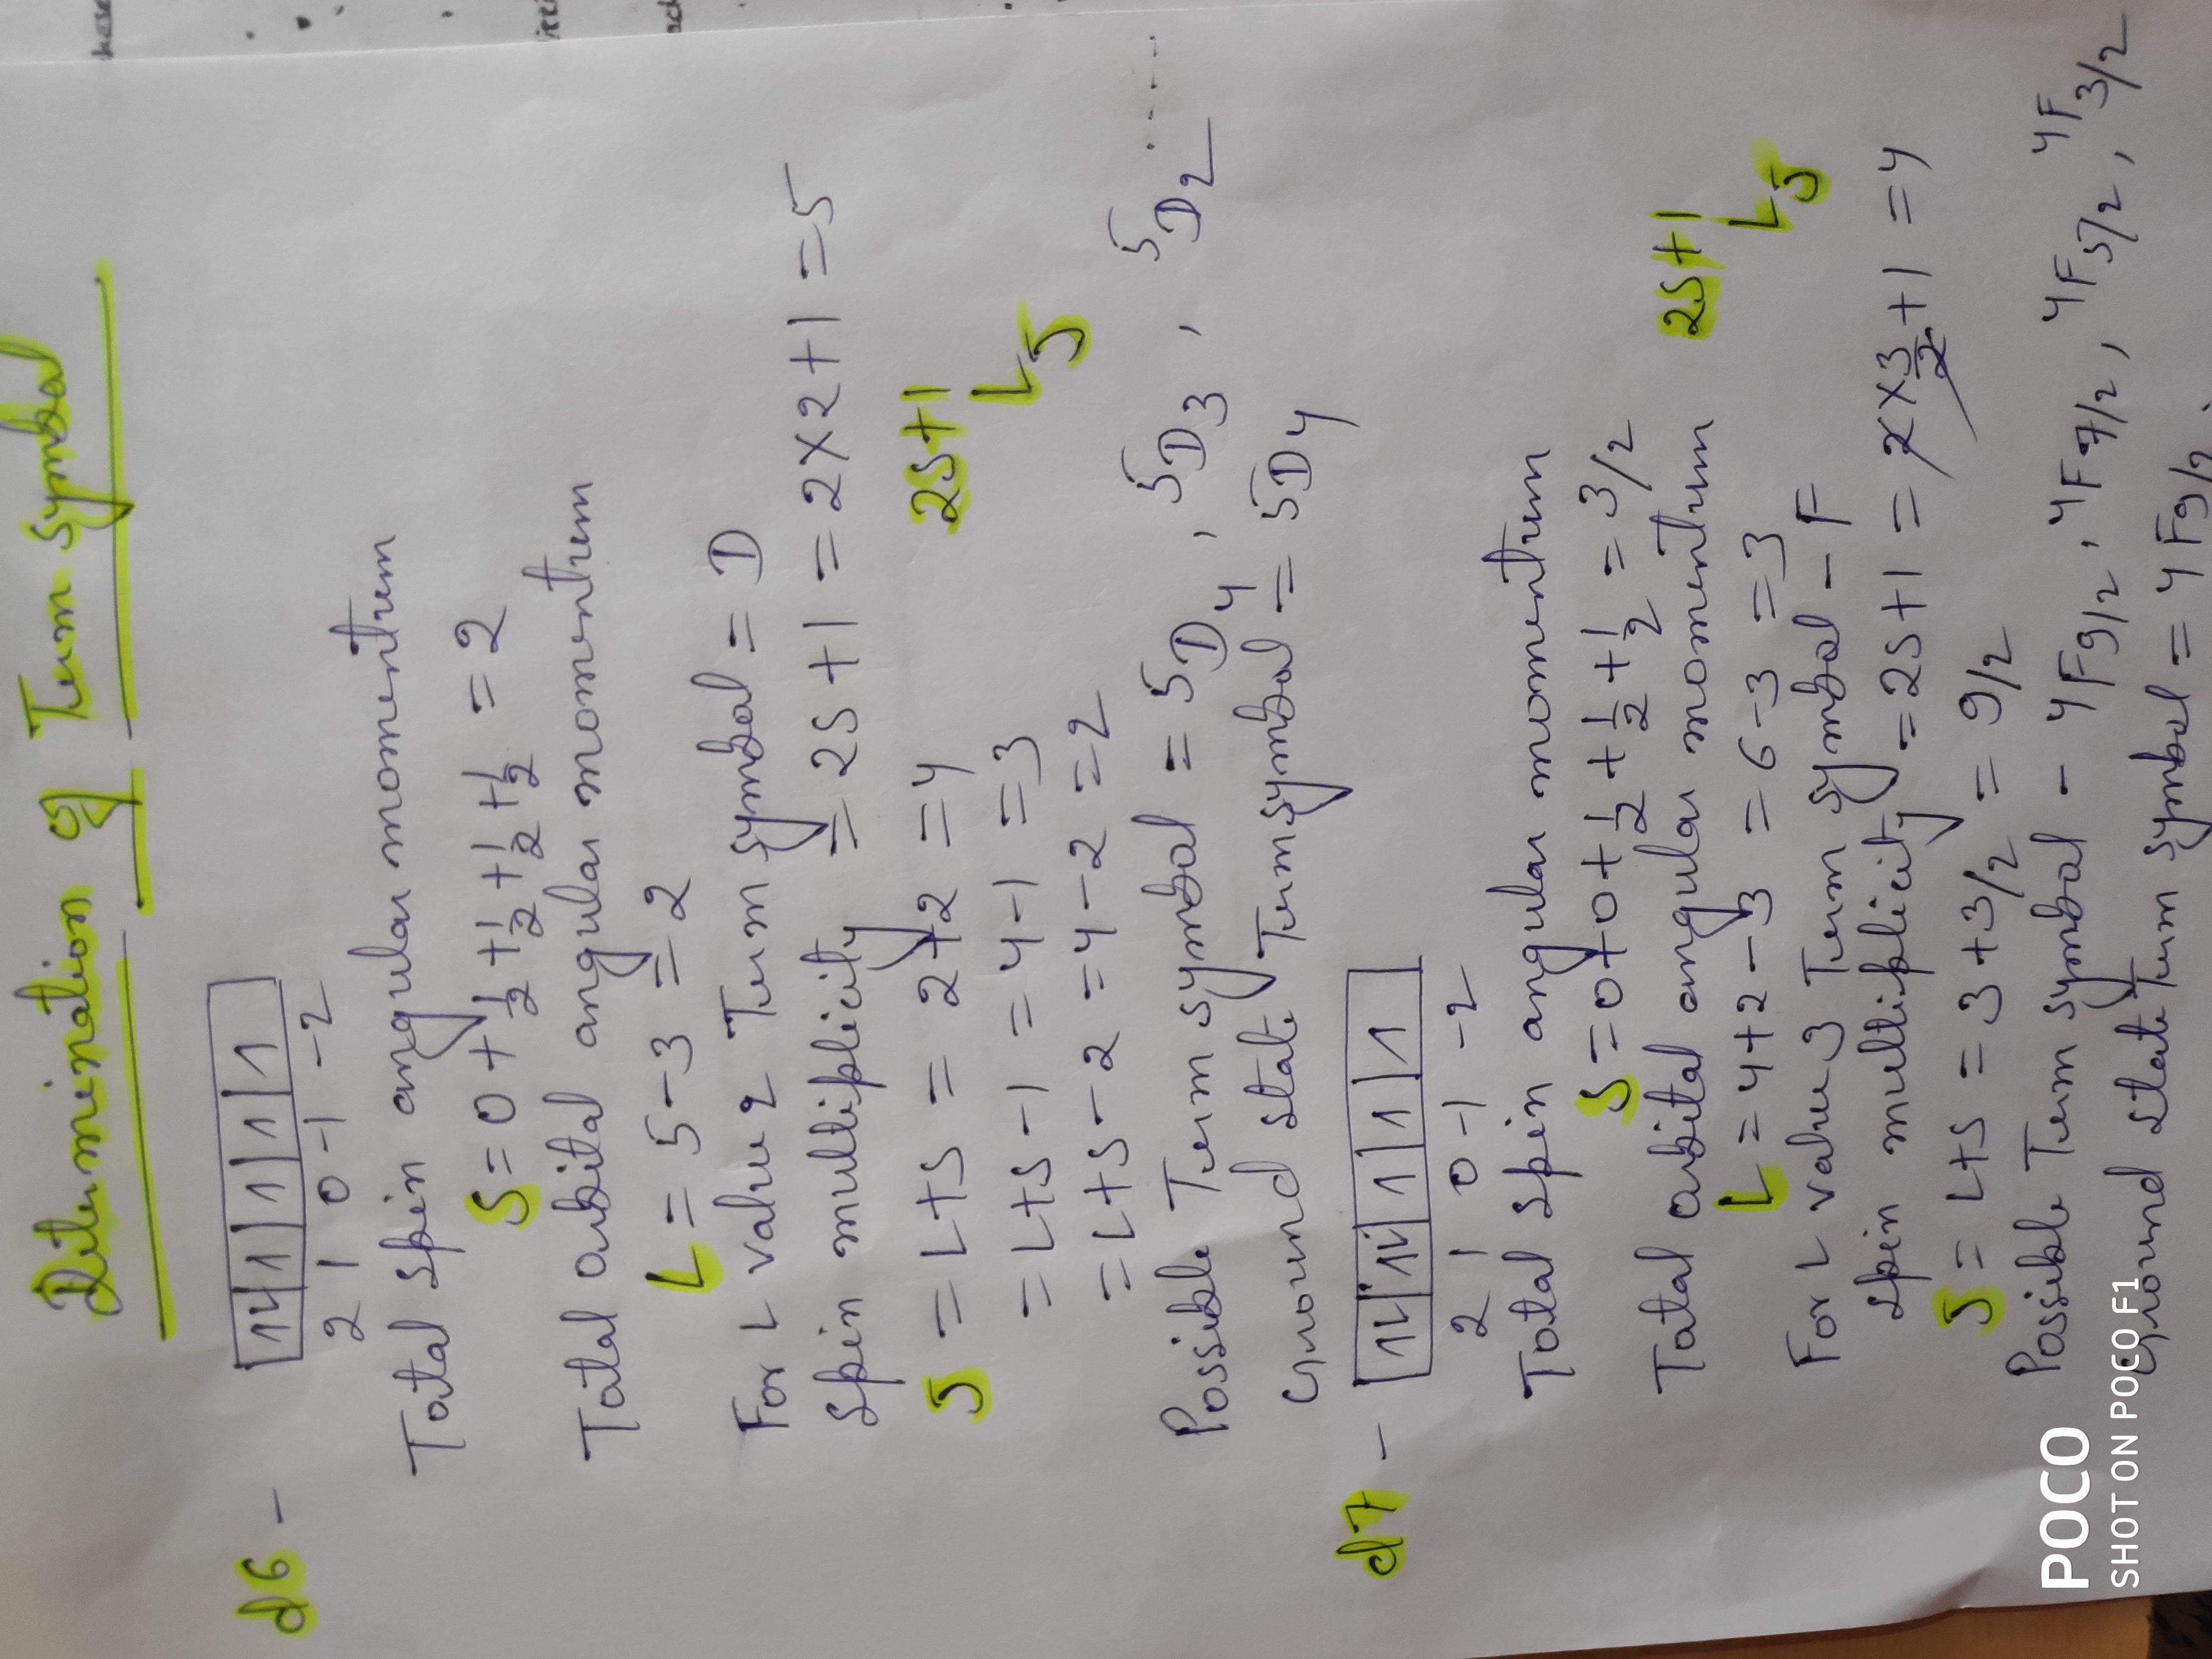 Determination of Term symbol
d6 - 1↿⇂ 1 1 1 1
2 1 0 -1 -2
Total spin angular momentum
S = 0 + 1/2 + 1/2 + 1/2 + 1/2 = 2
Total orbital angular momentum
L = 5 - 3 = 2
For L value 2 Term symbol = D
Spin multiplicity = 2S + 1 = 2 x 2 + 1 = 5
J = L+S = 2+2 = 4
2S+1
L J
= L+S-1 = 4-1 = 3
= L+S-2 = 4-2 = 2
Possible Term symbol = 5D4, 5D3, 5D2 .....
Ground state Term symbol = 5D4
d7 - 1↿⇂ 1↿⇂ 1 1 1
2 1 0 -1 -2
Total spin angular momentum
S = 0+0+ 1/2 + 1/2 + 1/2 = 3/2
Total orbital angular momentum
L = 4+2-3 = 6-3 = 3
2S+1
L J
For L value 3 Term symbol - F
Spin multiplicity = 2S+1 = 2 x 3/2 + 1 = 4
J = L+S = 3+3/2 = 9/2
Possible Term symbol - 4F9/2, 4F7/2, 4F5/2, 4F3/2
Ground state Term symbol = 4F9/2
POCO
SHOT ON POCO F1